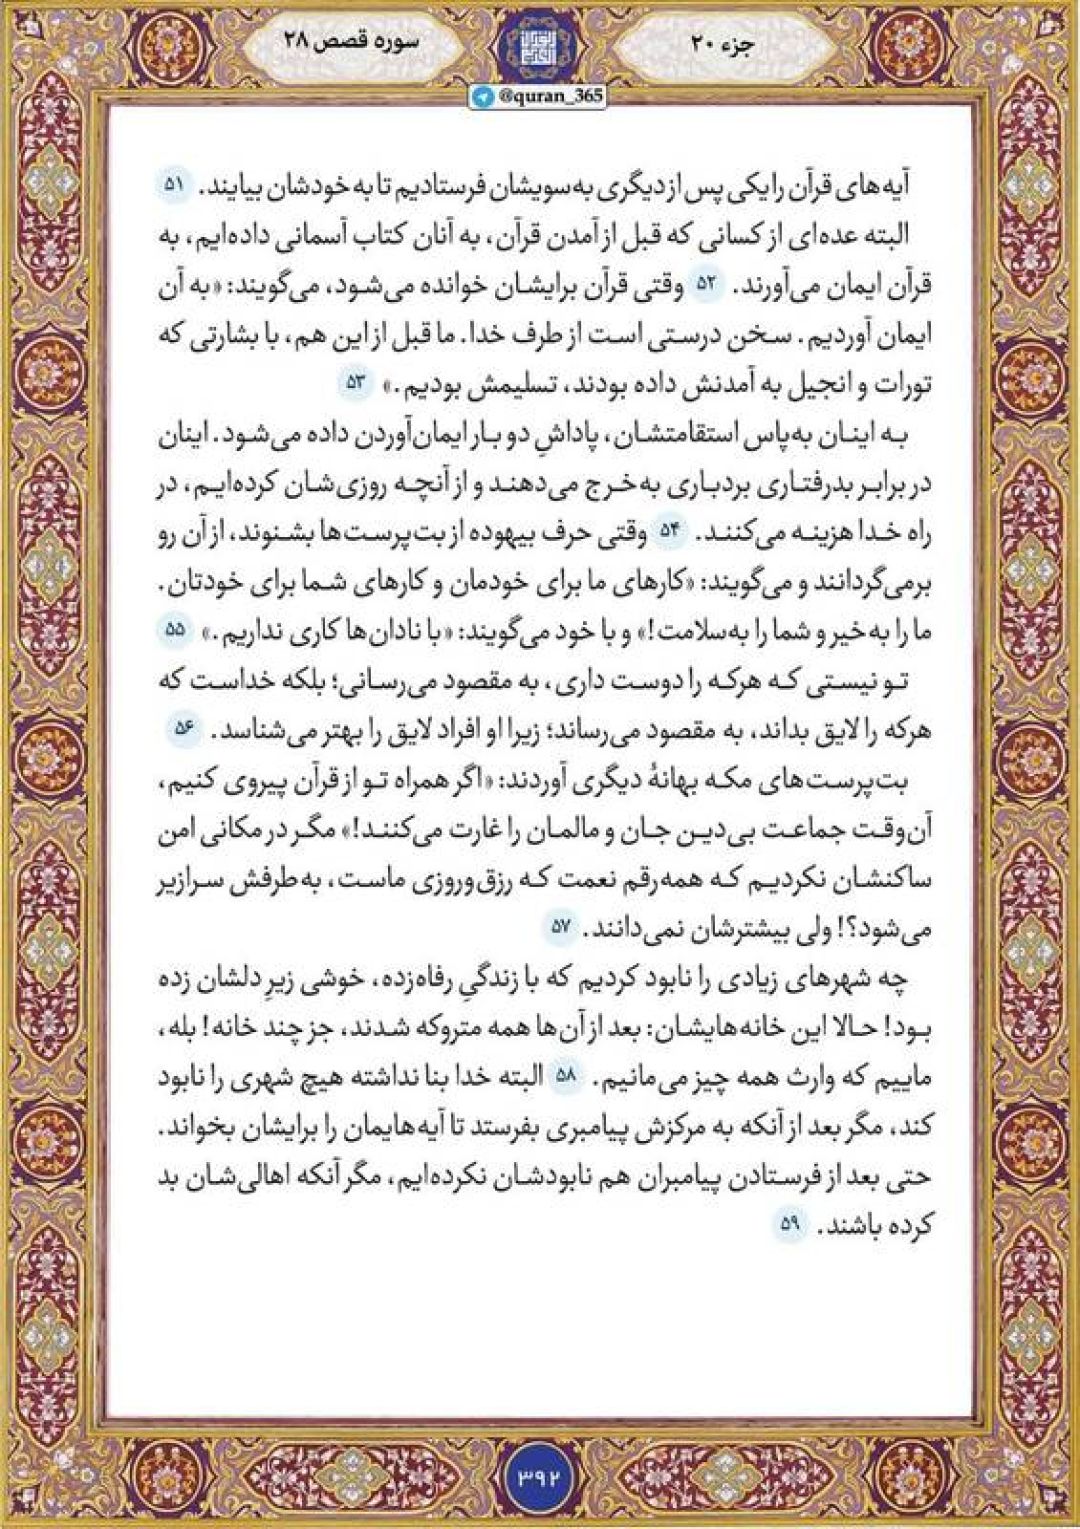 جزء ۲۰
سوره قصص ۲۸
@quran_365
آیه‌های قرآن را یکی پس از دیگری به‌سویشان فرستادیم تا به خودشان بیایند. ۵۱
البته عده‌ای از کسانی که قبل از آمدن قرآن، به آنان کتاب آسمانی داده‌ایم، به
قرآن ایمان می‌آورند. ۵۲ وقتی قرآن برایشان خوانده می‌شود، می‌گویند: «به آن
ایمان آوردیم. سخن درستی است از طرف خدا. ما قبل از این هم، با بشارتی که
تورات و انجیل به آمدنش داده بودند، تسلیمش بودیم.» ۵۳
به اینان به‌پاس استقامتشان، پاداشِ دو بار ایمان‌آوردن داده می‌شود. اینان
در برابر بدرفتاری بردباری به‌خرج می‌دهند و از آنچه روزی‌شان کرده‌ایم، در
راه خدا هزینه می‌کنند. ۵۴ وقتی حرف بیهوده از بت‌پرست‌ها بشنوند، از آن رو
برمی‌گردانند و می‌گویند: «کارهای ما برای خودمان و کارهای شما برای خودتان.
ما را به‌خیر و شما را به‌سلامت!» و با خود می‌گویند: «با نادان‌ها کاری نداریم.» ۵۵
تو نیستی که هرکه را دوست داری، به مقصود می‌رسانی؛ بلکه خداست که
هرکه را لایق بداند، به مقصود می‌رساند؛ زیرا او افراد لایق را بهتر می‌شناسد. ۵۶
بت‌پرست‌های مکه بهانهٔ دیگری آوردند: «اگر همراه تو از قرآن پیروی کنیم،
آن‌وقت جماعت بی‌دین جان و مالمان را غارت می‌کنند!» مگر در مکانی امن
ساکنشان نکردیم که همه‌رقم نعمت که رزق‌وروزی ماست، به‌طرفش سرازیر
می‌شود؟! ولی بیشترشان نمی‌دانند. ۵۷
چه شهرهای زیادی را نابود کردیم که با زندگیِ رفاه‌زده، خوشی زیرِ دلشان زده
بود! حالا این خانه‌هایشان: بعد از آن‌ها همه متروکه شدند، جز چند خانه! بله،
ماییم که وارث همه چیز می‌مانیم. ۵۸ البته خدا بنا نداشته هیچ شهری را نابود
کند، مگر بعد از آنکه به مرکزش پیامبری بفرستد تا آیه‌هایمان را برایشان بخواند.
حتی بعد از فرستادن پیامبران هم نابودشان نکرده‌ایم، مگر آنکه اهالی‌شان بد
کرده باشند. ۵۹
۳۹۲